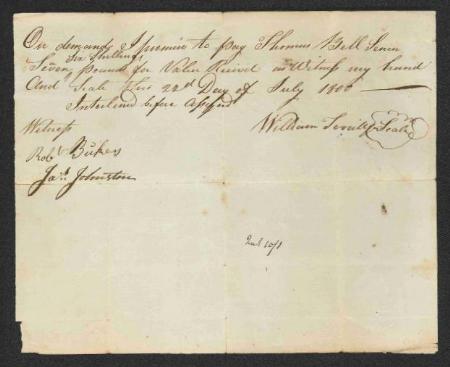 On demand I promise to pay Thomas Bell Seven
Six Shillings
Seven pound for Value Received as Witness my hand
And Seale this 22d Day of July 1800
Interlined before Assigned
William Seale
Witness
Robt Bukes
Jas. Johnston